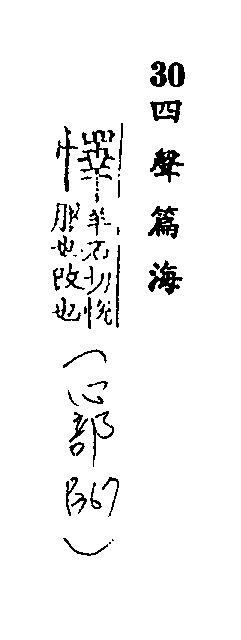 30四聲篇海
懌羊石切悅
服也改也
(心部
P367)